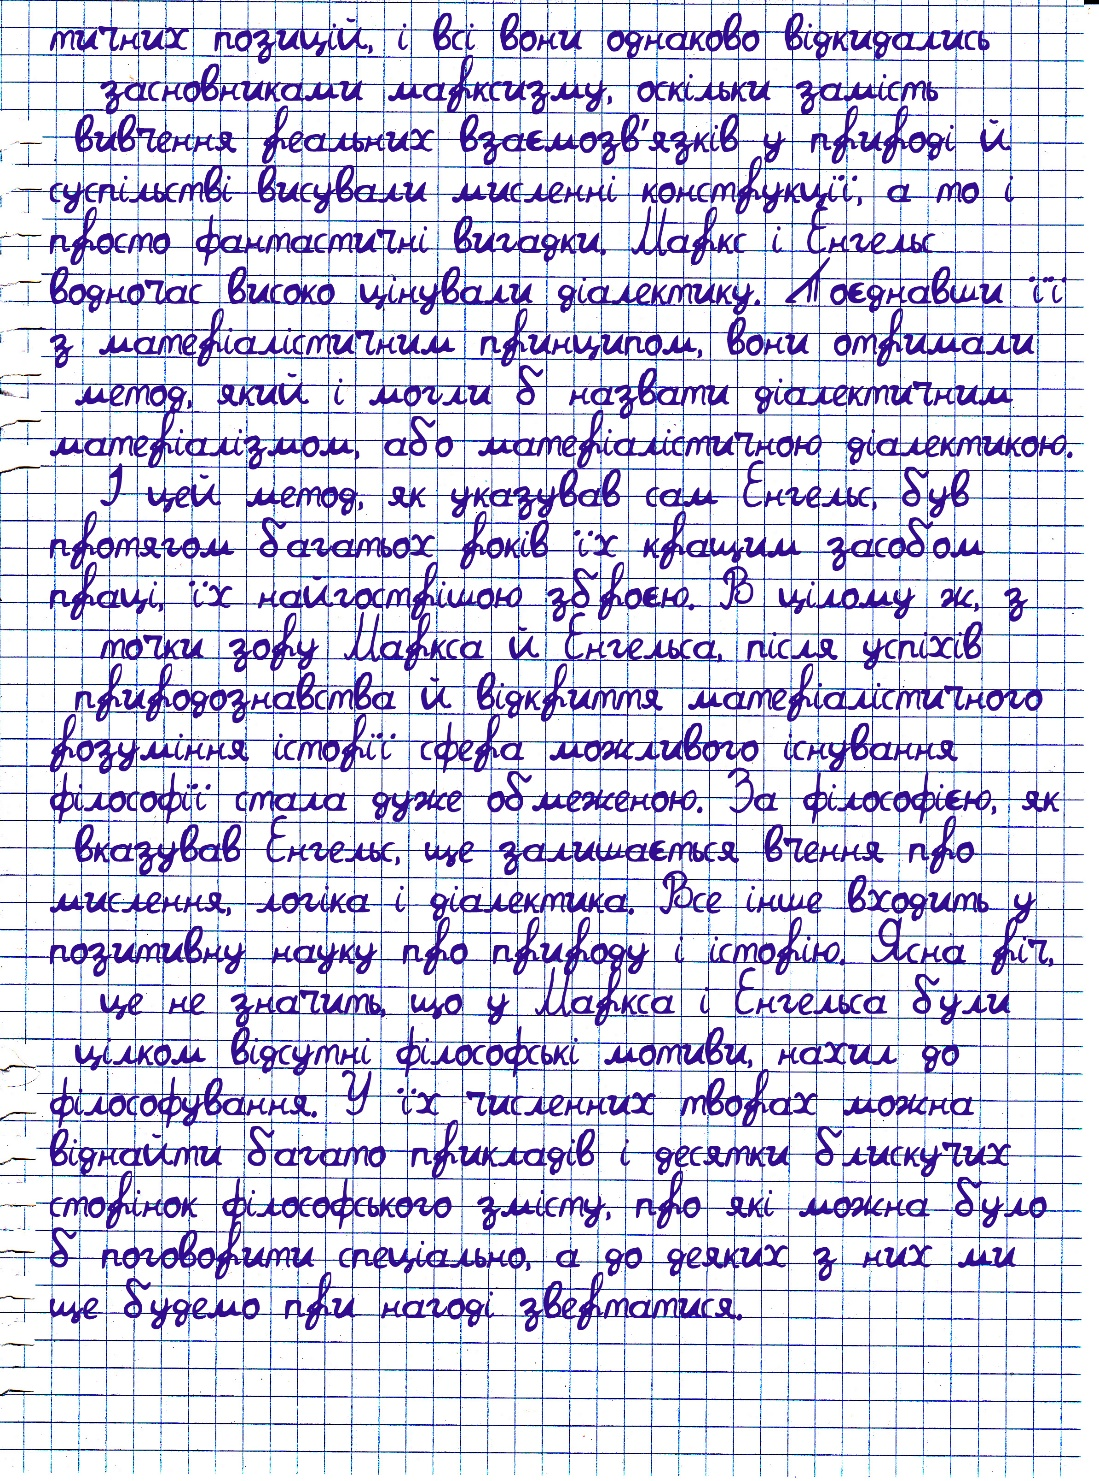 тичних позицій, і всі вони однаково відкидались
засновниками марксизму, оскільки замість
вивчення реальних взаємозв'язків у природі й
суспільстві висували мисленні конструкції, а то і
просто фантастичні вигадки. Маркс і Енгельс
водночас високо цінували діалектику. Поєднавши її
з матеріалістичним принципом, вони отримали
метод, який і могли б назвати діалектичним
матеріалізмом, або матеріалістичною діалектикою.
І цей метод, як указував сам Енгельс, був
протягом багатьох років їх кращим засобом
праці, їх найгострішою зброєю. В цілому ж, з
точки зору Маркса й Енгельса, після успіхів
природознавства й відкриття матеріалістичного
розуміння історії сфера можливого існування
філософії стала дуже обмеженою. За філософією, як
вказував Енгельс, ще залишається вчення про
мислення, логіка і діалектика. Все інше входить у
позитивну науку про природу і історію. Ясна річ,
це не значить, що у Маркса і Енгельса були
цілком відсутні філософські мотиви, нахил до
філософування. У їх численних творах можна
віднайти багато прикладів і десятки блискучих
сторінок філософського змісту, про які можна було
б поговорити спеціально, а до деяких з них ми
ще будемо при нагоді звертатися.